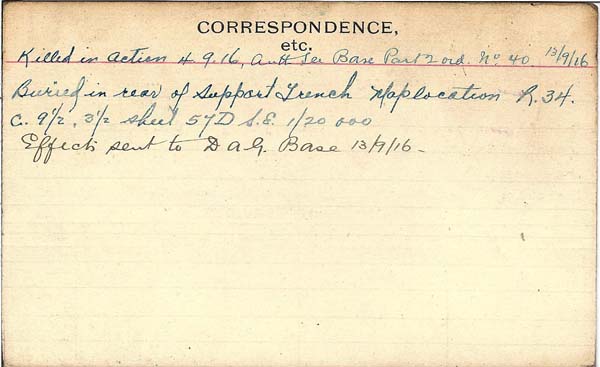 CORRESPONDENCE,
etc.
Killed in action 4.9.16, Auth Sec Base Part 2 ord. No 40 13/9/16
Buried in rear of Support Trench Map location R.34.
c. 9½, 3½ sheet 57D S.E. 1/20 000
Effects sent to D A G. Base 13/9/16 -